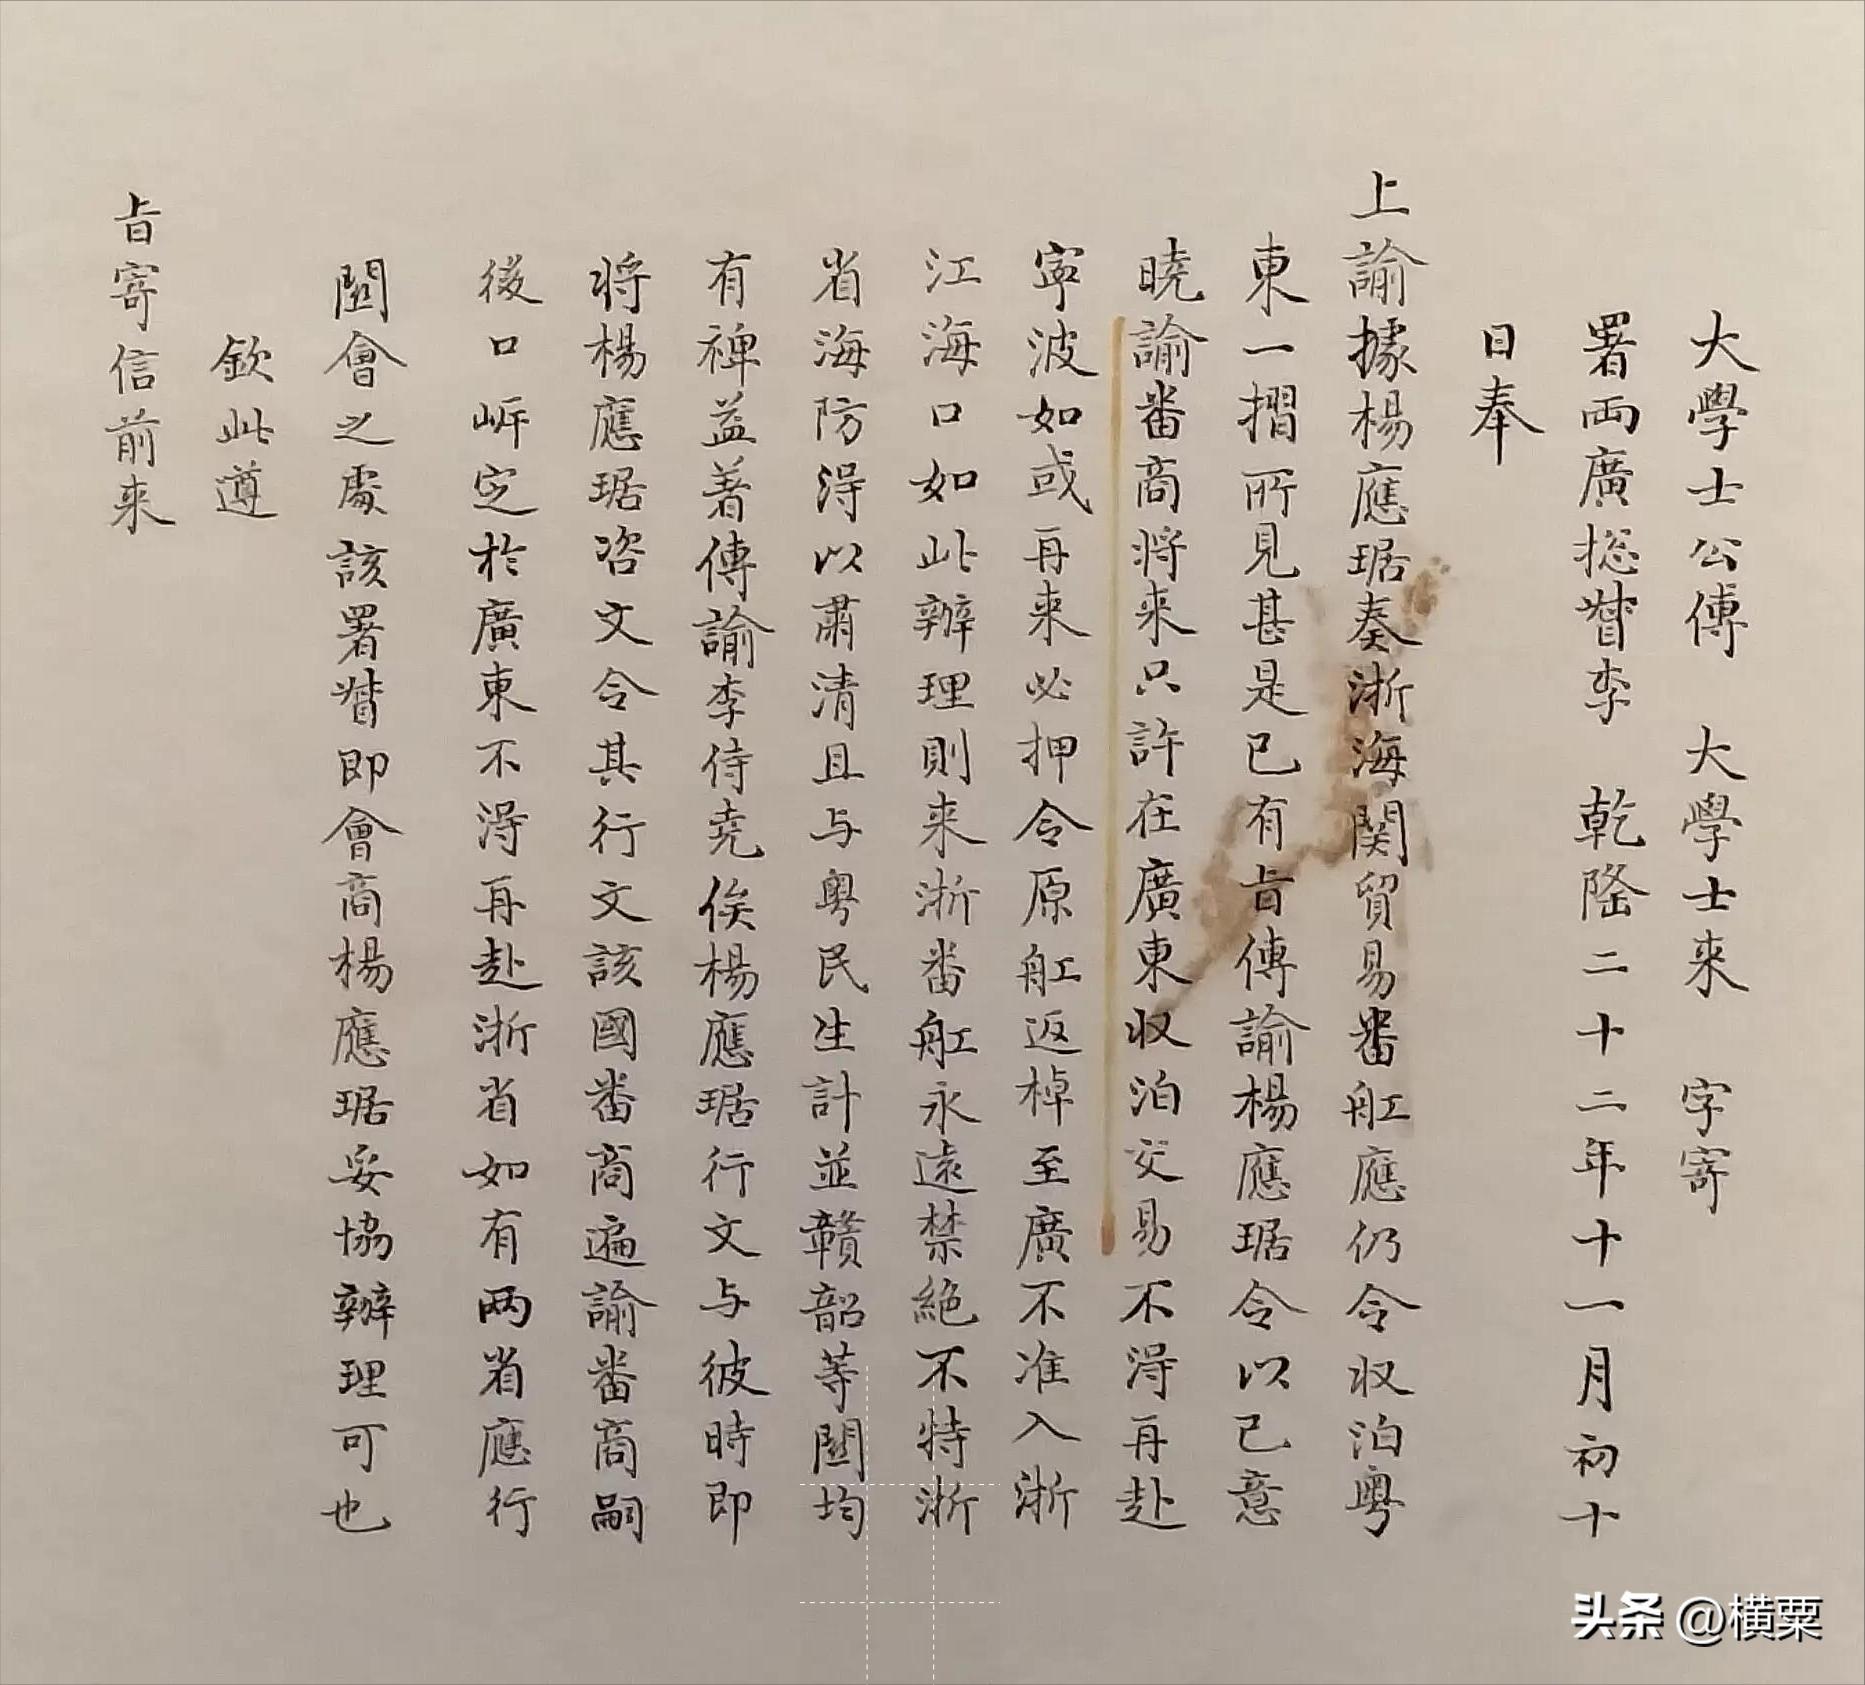 大學士公傅　大學士来　字寄
署兩廣揔督李　乾隆二十二年十一月初十
日奉
上諭據楊應琚奏浙海関貿易番舡應仍令收泊粤
東一摺所見甚是已有旨傳諭楊應琚令以已意
曉諭番商将来只許在廣東收泊交易不淂再赴
寧波如或再来必押令原舡返棹至廣不准入浙
江海口如此辦理則来浙番舡永遠禁絕不特浙
省海防淂以肅清且与粤民生計並贛韶等關均
有裨益著傳諭李侍堯俟楊應琚行文与彼時即
将楊應琚咨文令其行文該國番商遍諭番商嗣
後口岸定於廣東不淂再赴浙省如有兩省應行
關會之處該署督即會商楊應琚妥協辦理可也
欽此遵
旨寄信前来
头条 @横粟